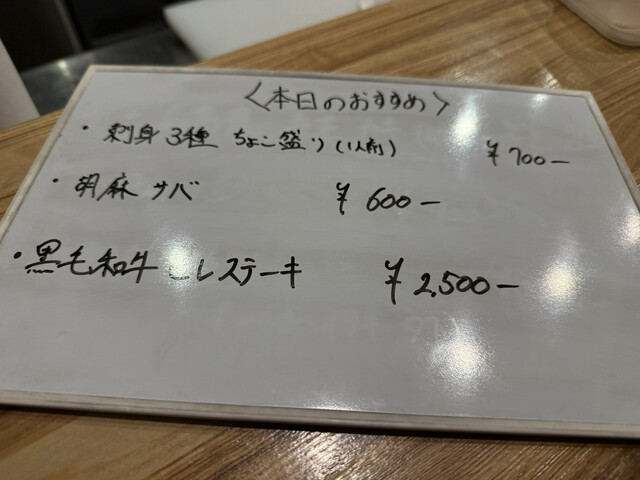 〈本日のおすすめ〉
・刺身3種 ちょこ盛り(1人前) ¥700－
・胡麻サバ ¥600－
・黒毛和牛ヒレステーキ ¥2,500－